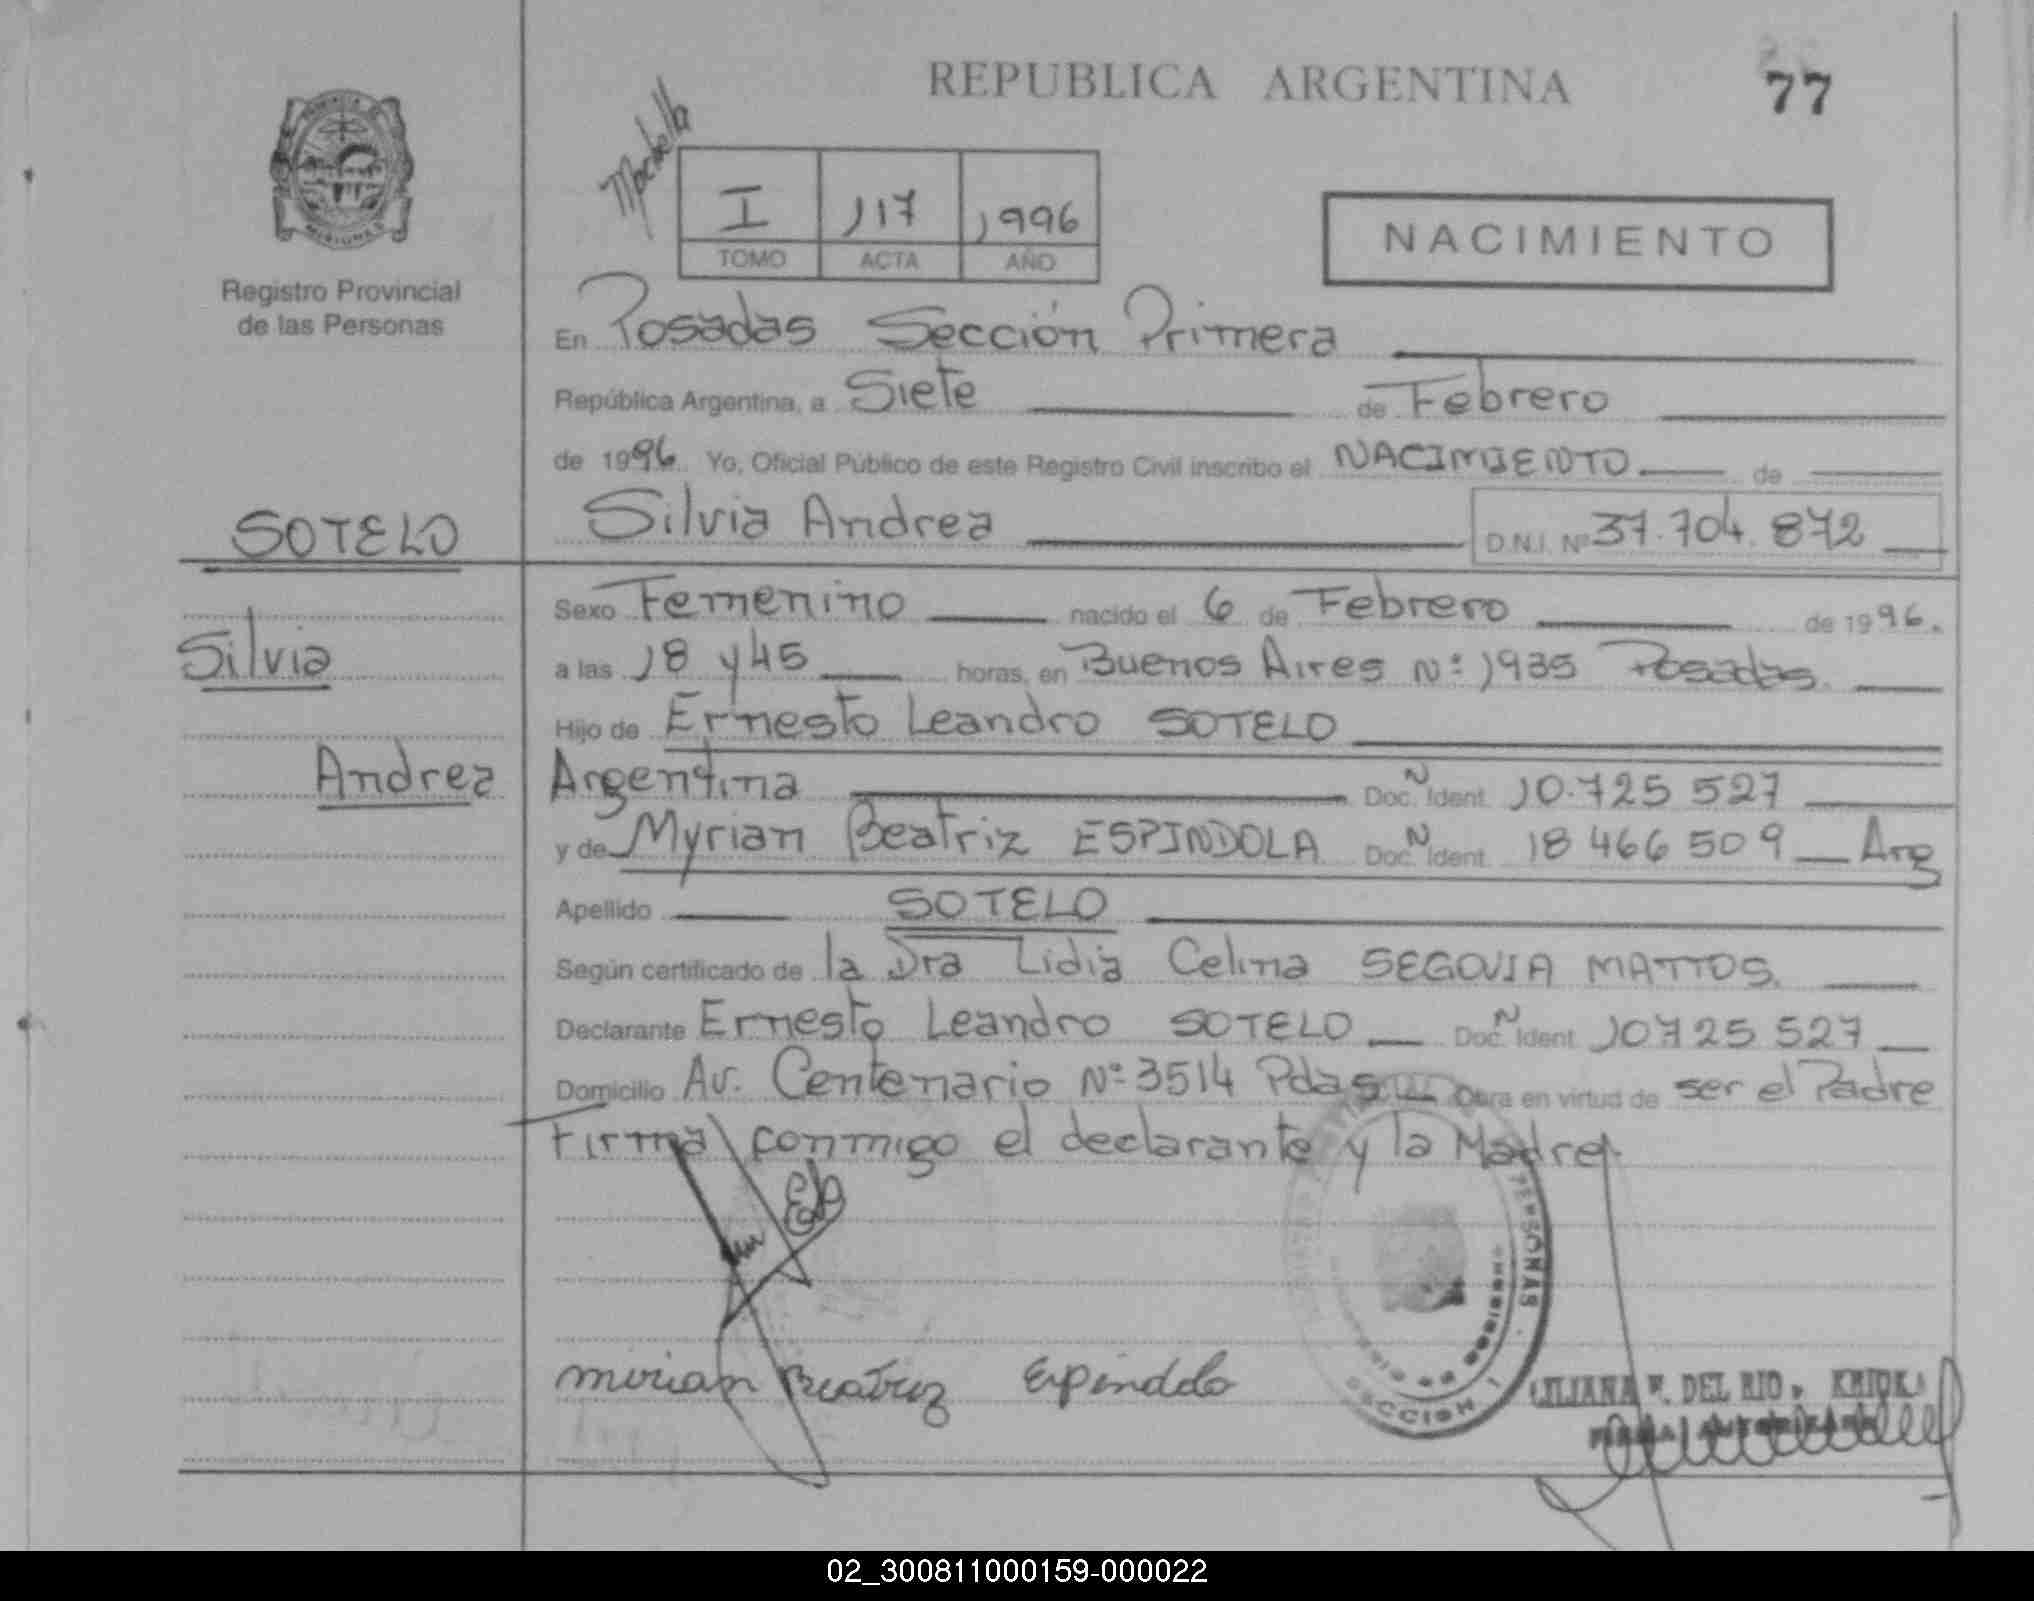 REPUBLICA ARGENTINA
77
I 117 1996
TOMO ACTA AÑO
NACIMIENTO
MISIONES
Registro Provincial
de las Personas
En Posadas Sección Primera
República Argentina, a Siete de Febrero
de 1996. Yo, Oficial Público de este Registro Civil inscribo el NACIMIENTO de
SOTELO
Silvia Andrea D.N.I. Nº 37.704.872
Sexo Femenino nacido el 6 de Febrero de 1996.
Silvia
a las 18 y 45 horas, en Buenos Aires Nº 1935 Posadas.
Hijo de Ernesto Leandro SOTELO
Andrea
Argentina Doc. N Ident. 10.725 527
y de Myrian Beatriz ESPINDOLA Doc. N Ident. 18 466 509 Arg
Apellido SOTELO
Según certificado de la Dra Lidia Celina SEGOVIA MATTOS.
Declarante Ernesto Leandro SOTELO Doc. N Ident. 10725 527
Domicilio Av. Centenario Nº 3514 Pdas Obra en virtud de ser el Padre
Firma conmigo el declarante y la Madre
PERSONAS
SECCION I
mirian Beatriz Espindola
LILIANA F. DEL RIO
FIRMA AUTORIZADA
02_300811000159-000022